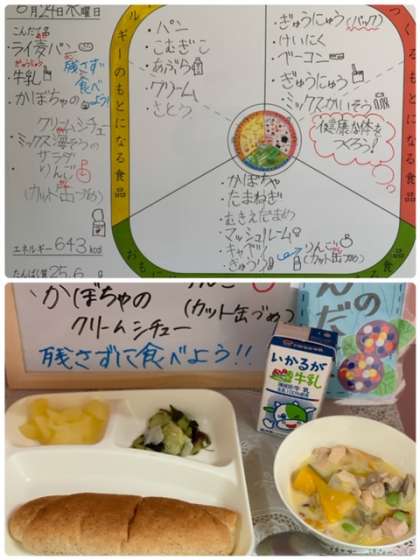 6月24日水曜日
こんだて名
ライ麦パン
ぎゅうにゅう
牛乳
残さず
食べ
よう!
かぼちゃの
クリームシチュー
ミックス海そうの
サラダ
りんご
(カット缶づめ)
エネルギー643kcal
たんぱく質25.6g
ルギーのもとになる食品
パン
こむぎこ
あぶら
クリーム
さとう
つくるもとになる食品
ぎゅうにゅう(パック)
けいにく
ベーコン
ぎゅうにゅう
ミックスかいそう
健康な体を
つくろう!
かぼちゃ
たまねぎ
むきえだまめ
マッシュルーム
キャベツ
きゅうり
りんご
(カット缶づめ)
かぼちゃの
クリームシチュー
りんご
(カット缶づめ)
残さずに食べよう!!
いかるが
牛乳
の
んだ